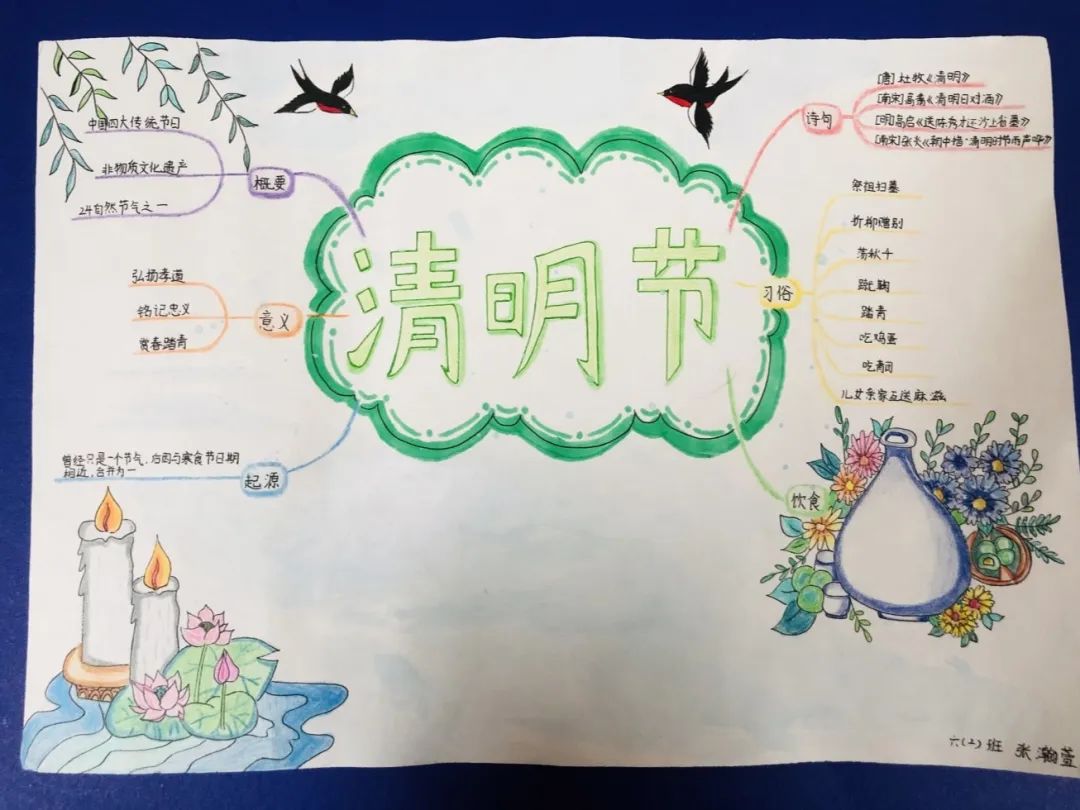 清明节
概要
中国四大传统节日
非物质文化遗产
24自然节气之一
意义
弘扬孝道
铭记忠义
赏春踏青
起源
曾经只是一个节气,后因与寒食节日期
相近,合并为一
诗句
[唐]杜牧《清明》
[南宋]高翥《清明日对酒》
[明]高启《送陈秀才还沙上省墓》
[南宋]张炎《朝中措·清明时节雨声哗》
习俗
祭祖扫墓
折柳赠别
荡秋千
蹴鞠
踏青
吃鸡蛋
吃青团
儿女亲家互送麻滋
饮食
六(2)班 张瀚萱